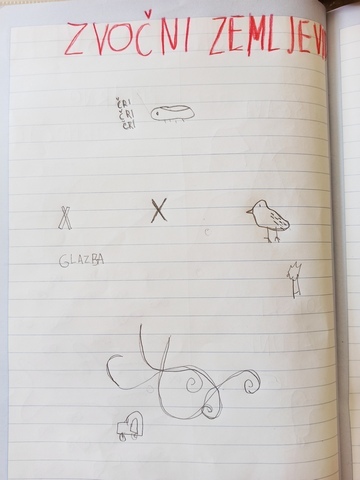 ZVOČNI ZEMLJEVI
ČRI
ČRI
ČRI
X
X
GLAZBA